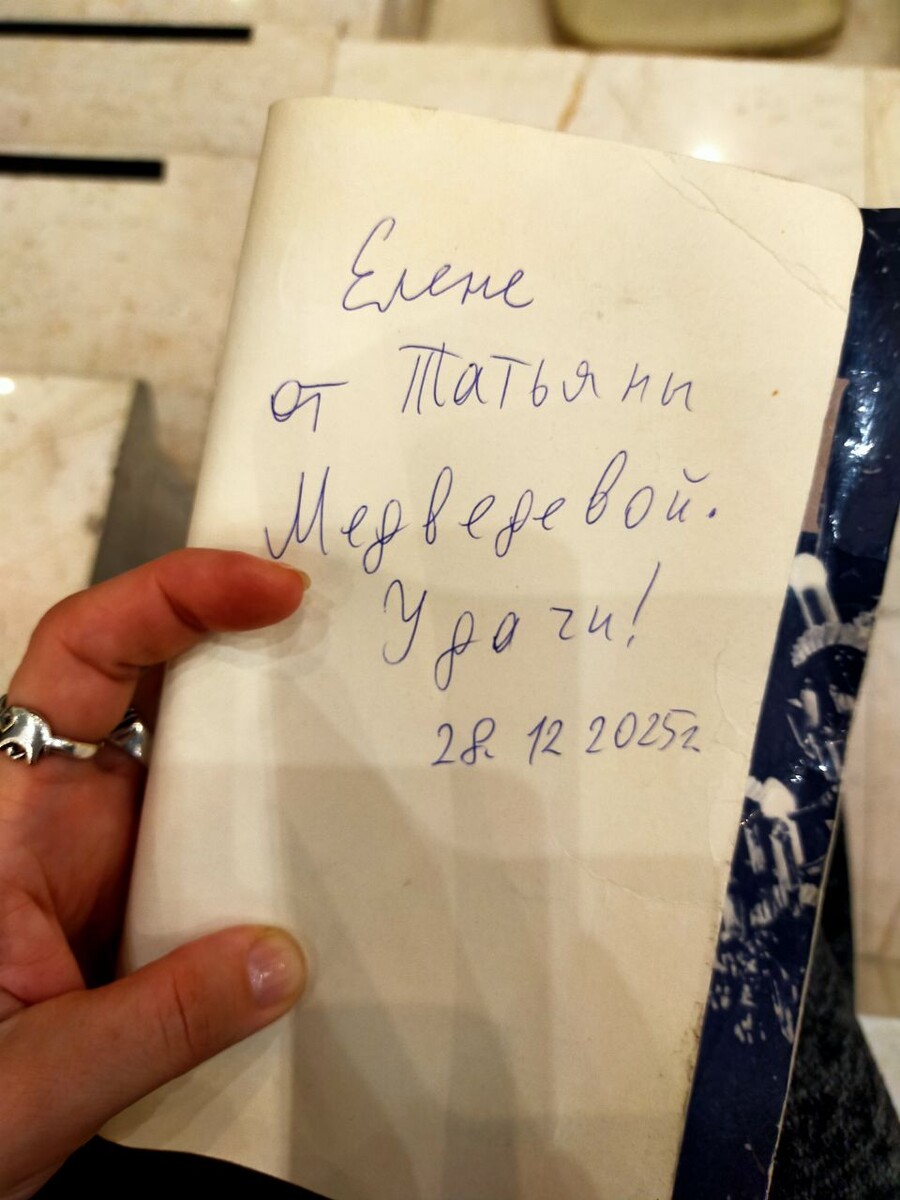 Елене
от Татьяны
Медведевой.
Удачи!
28. 12 2025г.